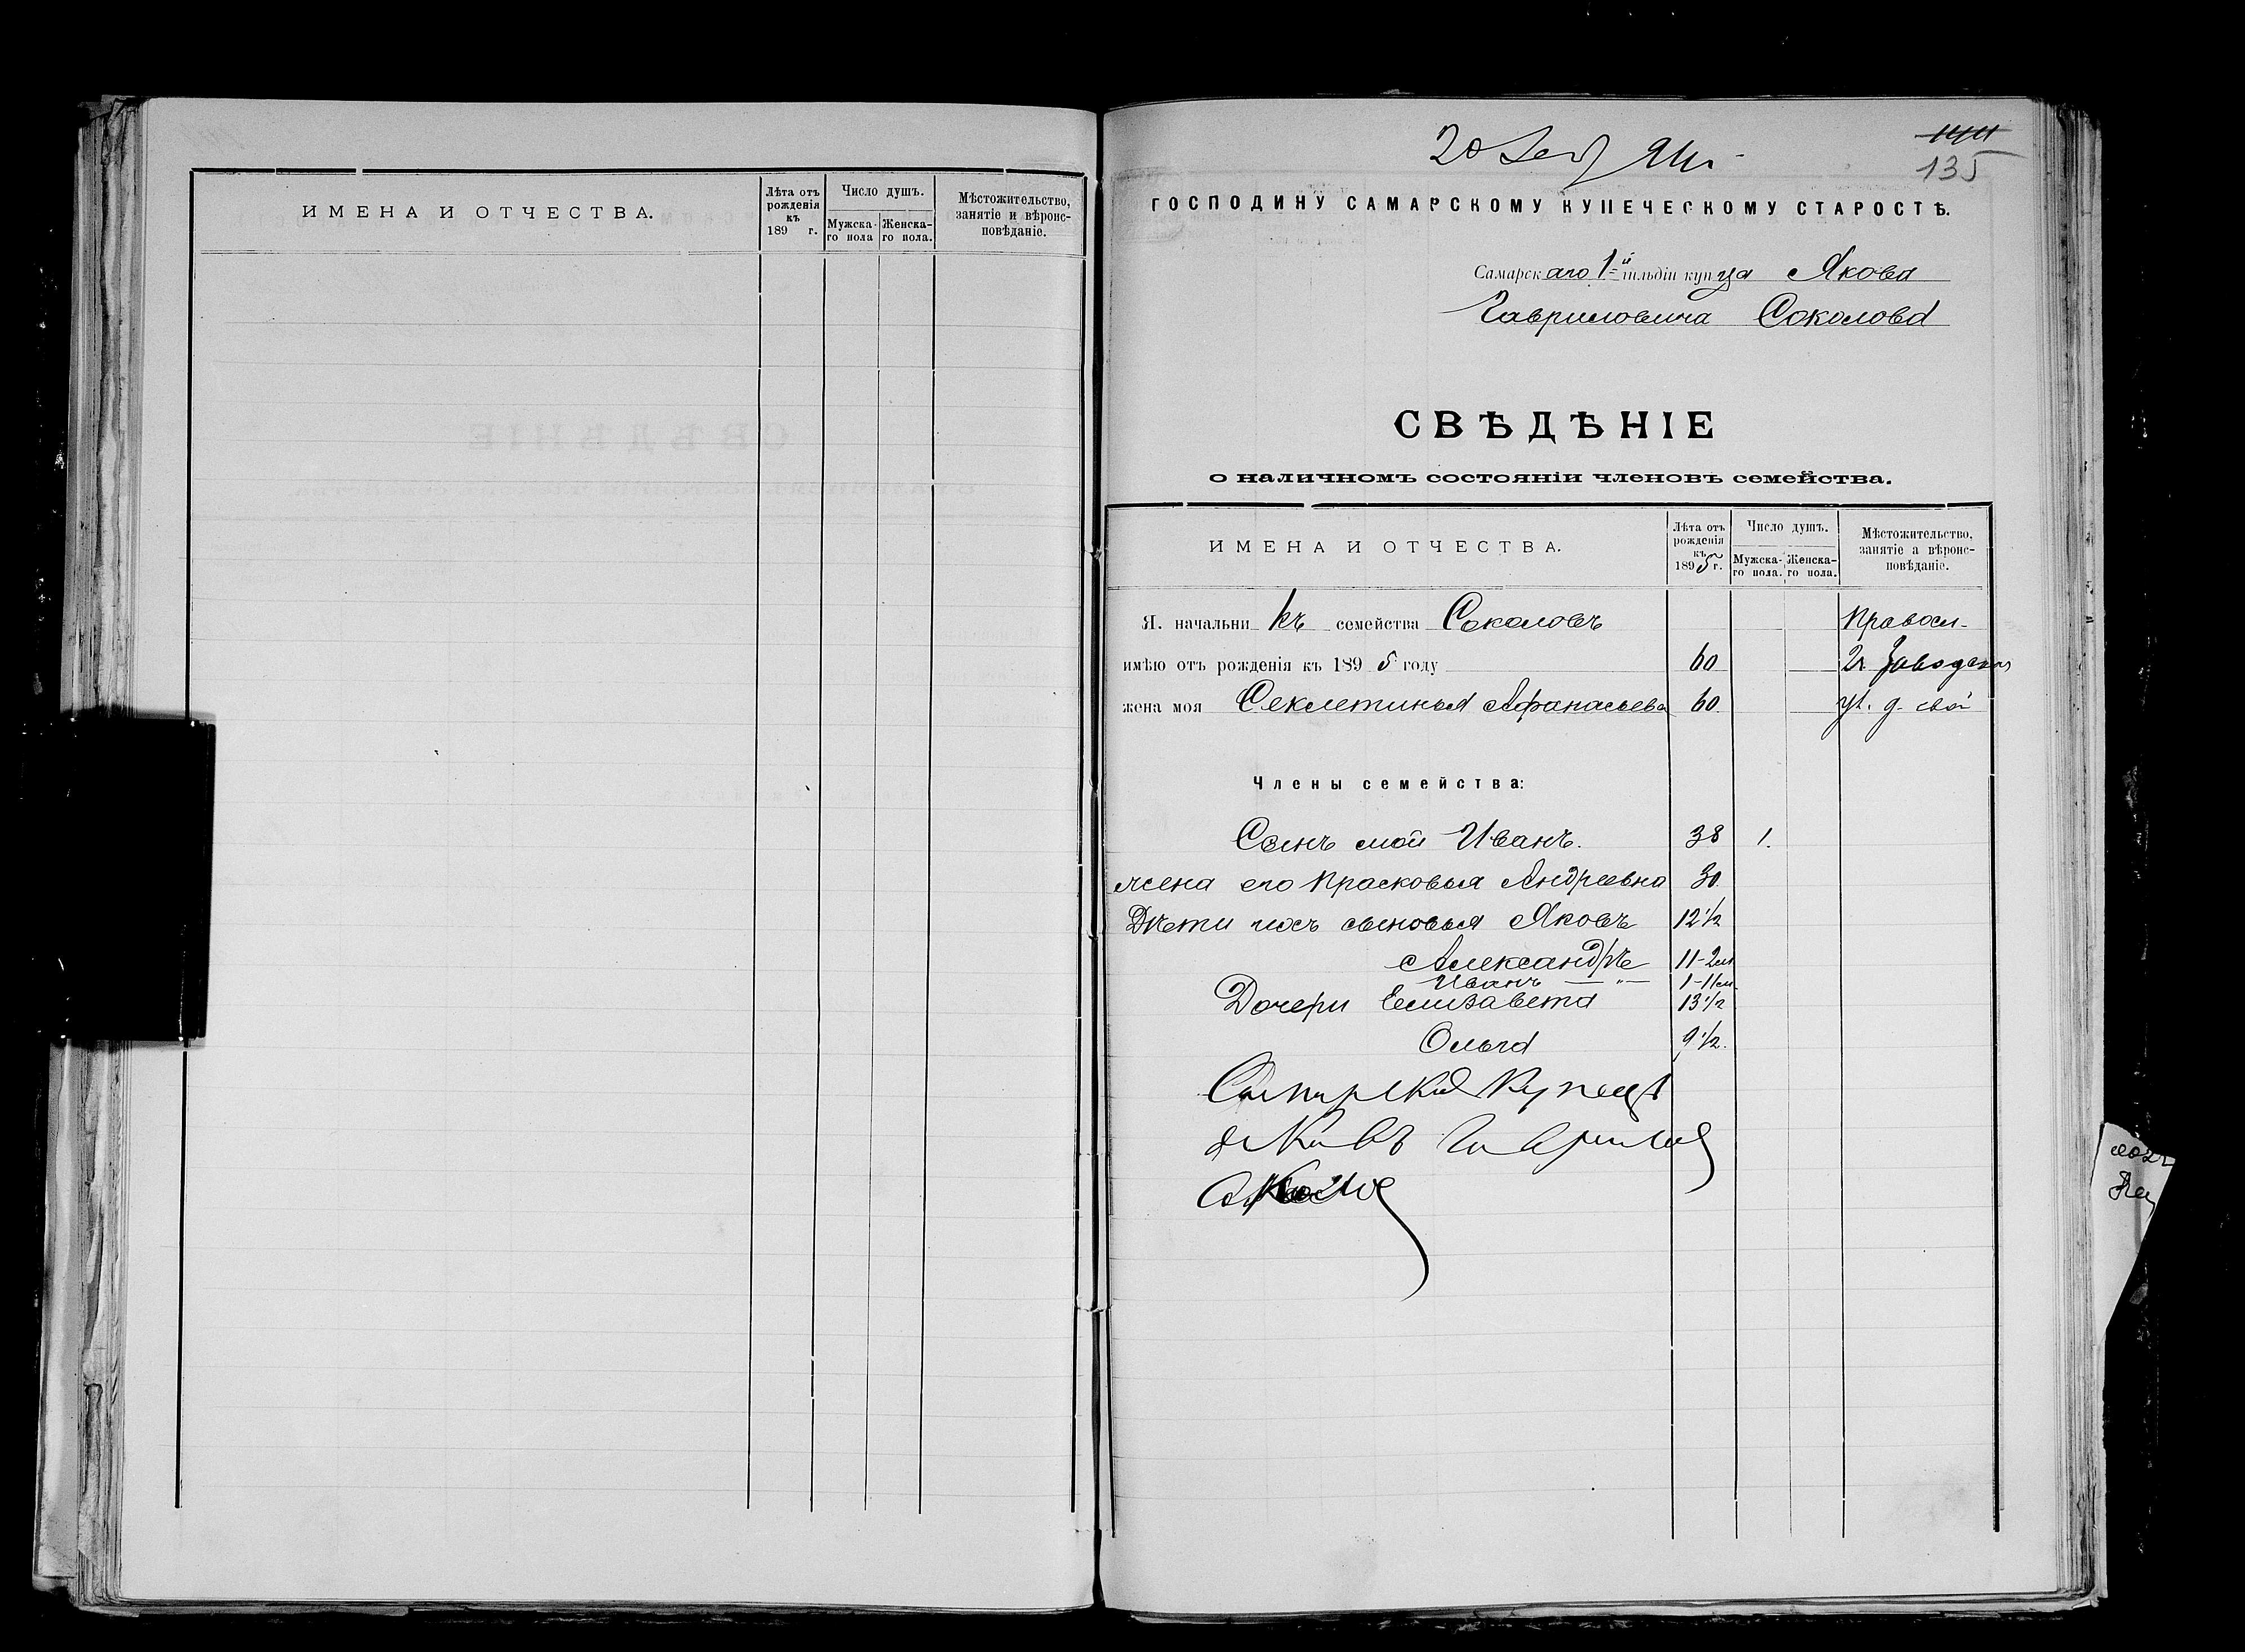 ИМЕНА И ОТЧЕСТВА.
Лѣта отъ рожденія къ 189 г.
Число душъ.
Мужска-го пола
Женска-го пола.
Мѣстожительство, занятіе и вѣроис-повѣданіе.
135
ГОСПОДИНУ САМАРСКОМУ КУПЕЧЕСКОМУ СТАРОСТѢ.
Самарскаго 1-й гильдіи купца Якова
Гавриловича Соколова
СВѢДѢНІЕ
о наличномъ состояніи членовъ семейства.
ИМЕНА И ОТЧЕСТВА.
Лѣта отъ рожденія къ 1895 г.
Число душъ.
Мужска-го пола.
Женска-го пола.
Мѣстожительство, занятіе а вѣроис-повѣданіе.
Я. начальникъ семейства Соколовъ Правосл-
имѣю отъ рожденія къ 1895 году 60
жена моя Секлетинья Афанасьева 60 ул. д. свой
Члены семейства:
Сынъ мой Иванъ. 38 1.
жена его Прасковья Андреевна 30
Дѣти ихъ сыновья Яковъ 12 1/2
Александръ 11-2м
Иванъ — „ — 1-11м.
Дочери Елизавета 13 1/2
Ольга 9 1/2.
Самарский Купецъ
Яковъ Гаврилов